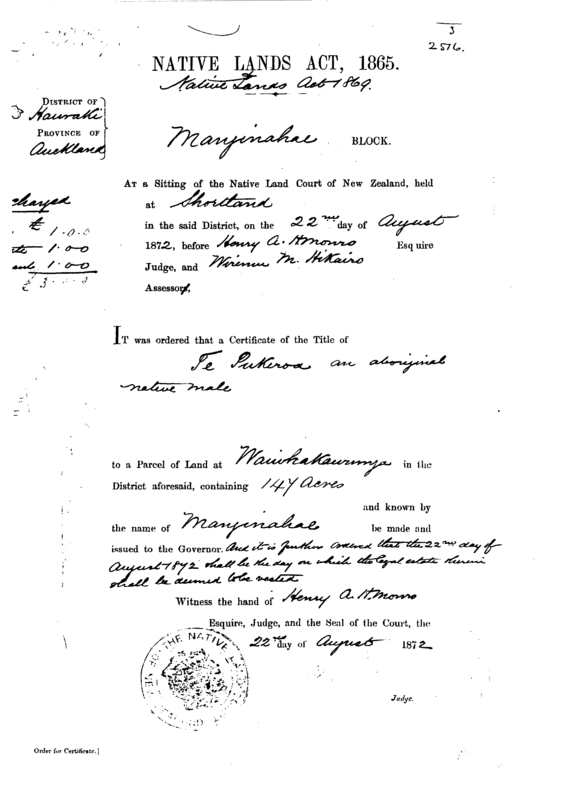 3
2576.
NATIVE LANDS ACT, 1865.
Native Lands Act 1869.
DISTRICT OF
Hauraki
PROVINCE OF
Auckland
Manginahae BLOCK.
AT a Sitting of the Native Land Court of New Zealand, held
at Shortland
in the said District, on the 22nd day of August
1872, before Henry A. H. Monro Esquire
Judge, and Wiremu M. Hikairo
Assessor,
charged
£ 1.0.0
1.0.0
1.0.0
£ 3.0.0
IT was ordered that a Certificate of the Title of
Te Pukeroa an aboriginal
native male
to a Parcel of Land at in the
District aforesaid, containing 147 Acres
and known by
the name of Manginahae be made and
issued to the Governor. And it is further ordered that the 22nd day of
August 1872 shall be the day on which the legal estate herein
shall be deemed to be vested
Witness the hand of Henry A. H. Monro
Esquire, Judge, and the Seal of the Court, the
22nd day of August 1872
THE NATIVE
Judge.
Order for Certificate.]